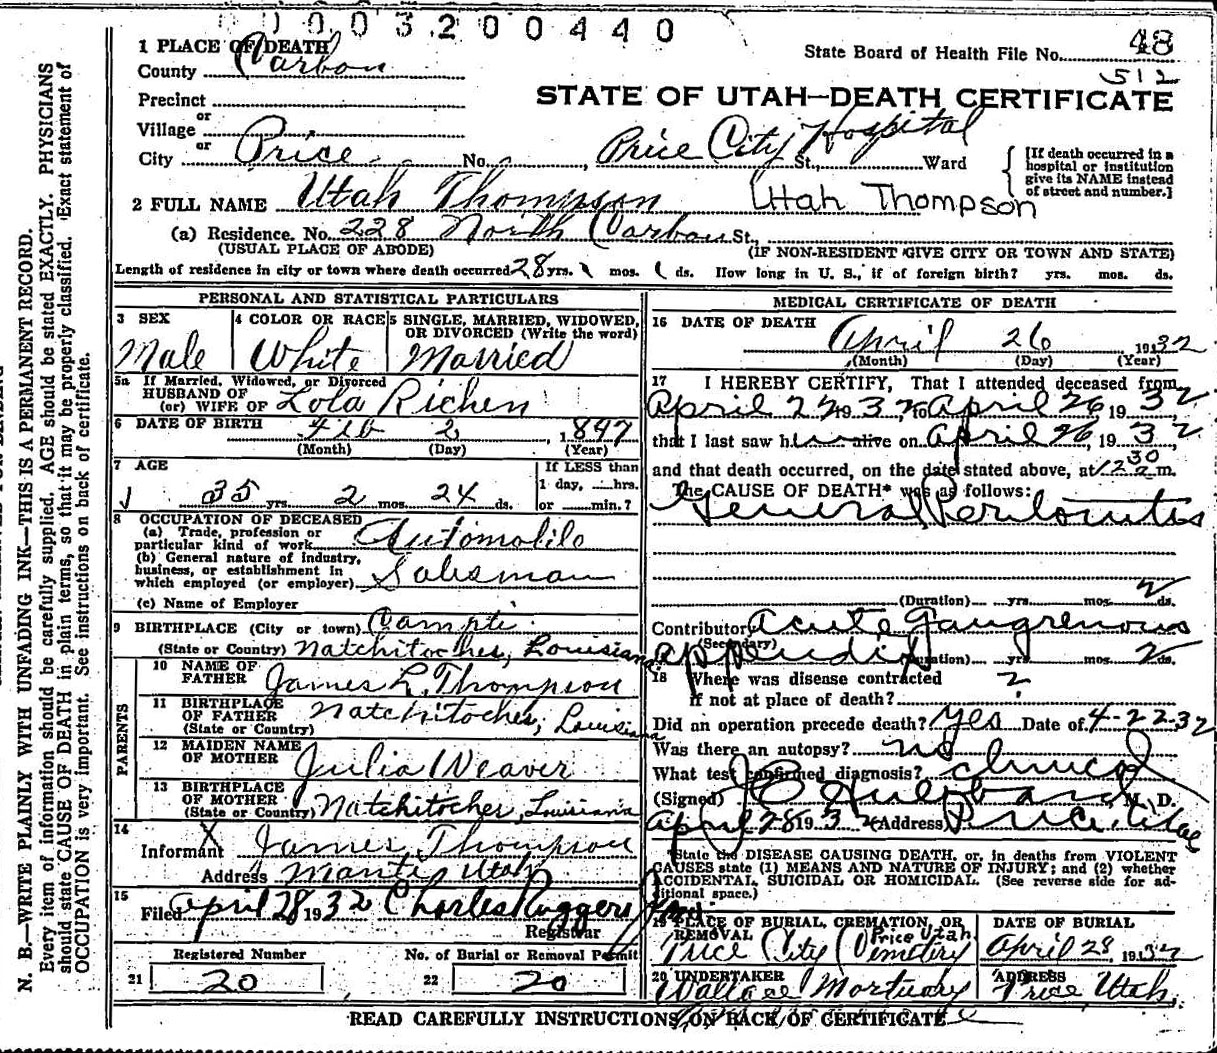 0003200440
1 PLACE OF DEATH
State Board of Health File No. 48
County Carbon
512
STATE OF UTAH—DEATH CERTIFICATE
Precinct
or
Village
or
City Price No. Price City Hospital St., Ward
[If death occurred in a hospital or institution give its NAME instead of street and number.]
2 FULL NAME Utah Thompson Utah Thompson
(a) Residence. No. 228 North Carbon St.,
(USUAL PLACE OF ABODE) (IF NON-RESIDENT GIVE CITY OR TOWN AND STATE)
Length of residence in city or town where death occurred 28 yrs. mos. ds. How long in U. S., if of foreign birth? yrs. mos. ds.
PERSONAL AND STATISTICAL PARTICULARS
3 SEX 4 COLOR OR RACE 5 SINGLE, MARRIED, WIDOWED, OR DIVORCED (Write the word)
Male White Married
5a If Married, Widowed, or Divorced
HUSBAND OF
(or) WIFE OF Lola Richen
6 DATE OF BIRTH Feb 2, 1897
(Month) (Day) (Year)
7 AGE If LESS than
1 day, hrs.
35 yrs. 2 mos. 24 ds. or min.?
8 OCCUPATION OF DECEASED
(a) Trade, profession or
particular kind of work Automobile
(b) General nature of industry,
business, or establishment in
which employed (or employer) Salesman
(c) Name of Employer
9 BIRTHPLACE (City or town) Campti
(State or Country) Natchitoches, Louisiana
PARENTS
10 NAME OF
FATHER James L. Thompson
11 BIRTHPLACE
OF FATHER Natchitoches, Louisiana
(State or Country)
12 MAIDEN NAME
OF MOTHER Julia Weaver
13 BIRTHPLACE
OF MOTHER
(State or Country) Natchitoches, Louisiana
14
Informant X James Thompson
Address Manti, Utah
15
Filed April 28 1932 Charles Ruggeri
Registrar
Registered Number No. of Burial or Removal Permit
21 20 22 20
MEDICAL CERTIFICATE OF DEATH
16 DATE OF DEATH April 26 1932
(Month) (Day) (Year)
17 I HEREBY CERTIFY, That I attended deceased from
April 22 1932 to April 26 1932
that I last saw him alive on April 26, 1932
and that death occurred, on the date stated above, at 12 30 m.
The CAUSE OF DEATH* was as follows:
General Peritonitis
(Duration) yrs. mos. 2 ds.
Contributory Acute Gangrenous
(Secondary)
appendix (Duration) yrs. mos. 2 ds.
18 Where was disease contracted
if not at place of death? ?
Did an operation precede death? yes Date of 4-22-32
Was there an autopsy? no
What test confirmed diagnosis? clinical
(Signed) M. D.
April 28 1932 (Address) Price, Utah
*State the DISEASE CAUSING DEATH, or, in deaths from VIOLENT
CAUSES state (1) MEANS AND NATURE OF INJURY; and (2) whether
ACCIDENTAL, SUICIDAL OR HOMICIDAL. (See reverse side for ad-
ditional space.)
19 PLACE OF BURIAL, CREMATION, OR REMOVAL DATE OF BURIAL
Price Utah
Price City Cemetery April 28, 1932
20 UNDERTAKER ADDRESS
Wallace Mortuary Price, Utah.
READ CAREFULLY INSTRUCTIONS ON BACK OF CERTIFICATE
N. B.—WRITE PLAINLY WITH UNFADING INK—THIS IS A PERMANENT RECORD.
Every item of information should be carefully supplied. AGE should be stated EXACTLY. PHYSICIANS
should state CAUSE OF DEATH in plain terms, so that it may be properly classified. Exact statement of
OCCUPATION is very important. See instructions on back of certificate.